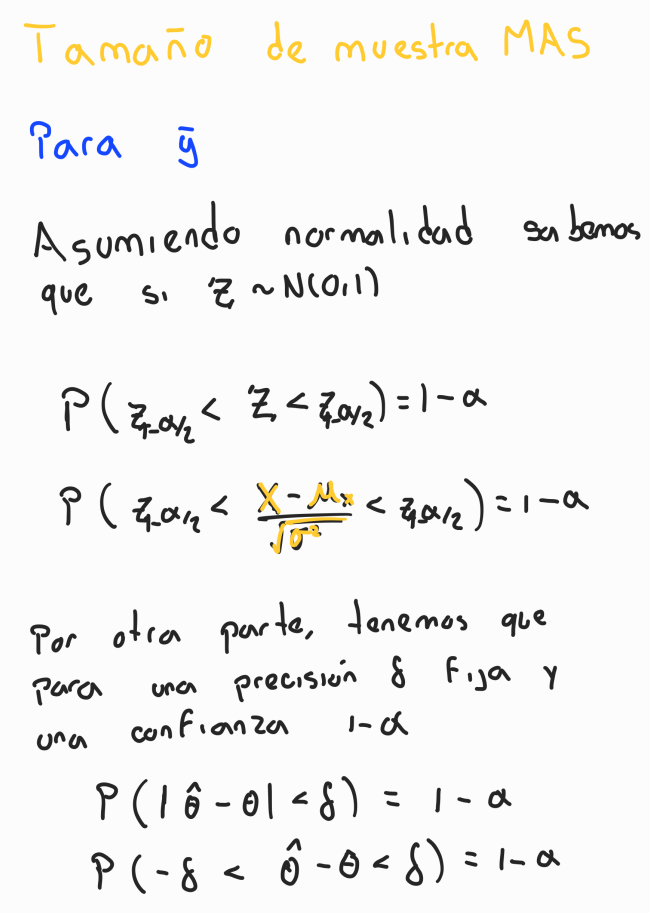 Tamaño de muestra MAS
Para ȳ
Asumiendo normalidad sabemos
que si Z ~ N(0,1)
P( z_{1-α/2} < Z < z_{1-α/2}) = 1 - α
P( z_{1-α/2} < (X - μ_x)/√σ² < z_{1-α/2}) = 1 - α
Por otra parte, tenemos que
para una precisión δ fija y
una confianza 1-α
P(|θ̂ - θ| < δ) = 1 - α
P(-δ < θ̂ - θ < δ) = 1 - α